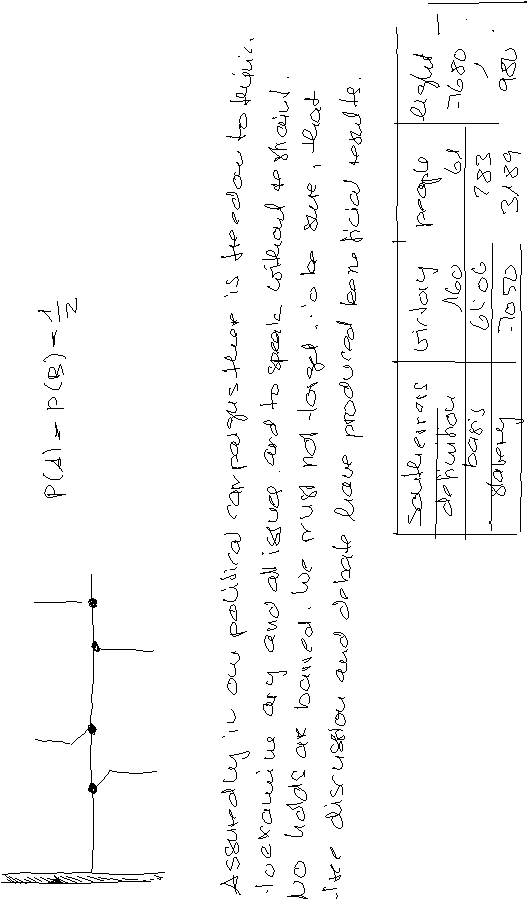 P(A) = P(B) = 1/2
Assuredly in our political campaigns there is freedom to think.
to examine any and all issues and to speak without restraint.
No holds are barred. We must not forget, to be sure, that
free discussion and debate have produced beneficial results.
Southerners victory people light
definition 160 61 -7680
basis 6506 783 ,
slavery -7050 3189 980